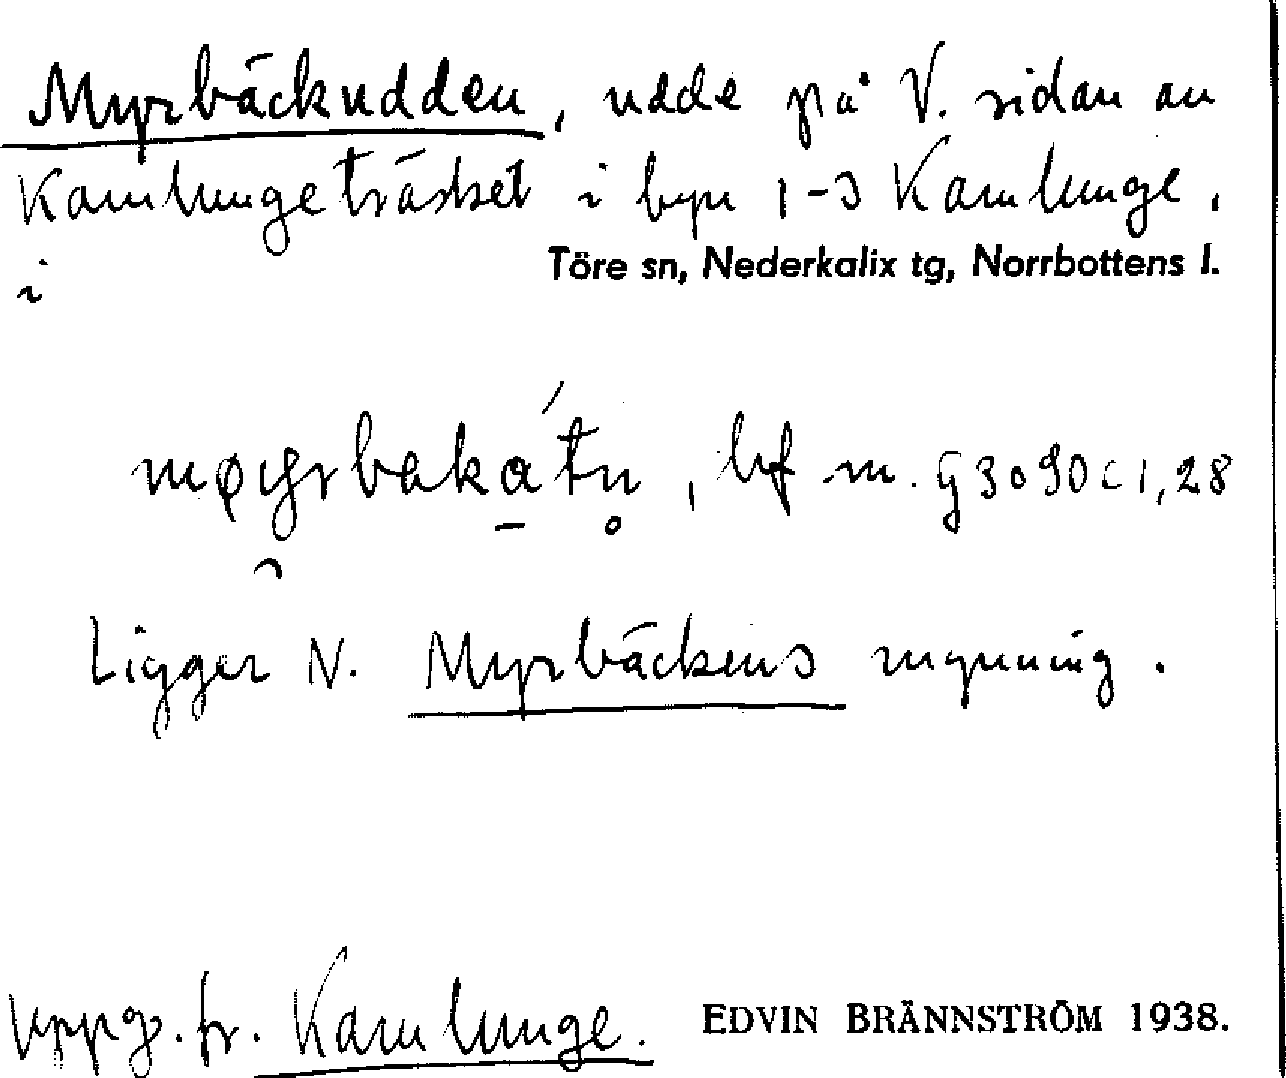 Myrbäckudden, udde på V. sidan av
Kamlungeträsket i byn 1-3 Kamlunge,
i Töre sn, Nederkalix tg, Norrbottens l.
bf m. 28
Ligger N. Myrbäckens mynning.
Uppg. fr. Kamlunge. EDVIN BRÄNNSTRÖM 1938.